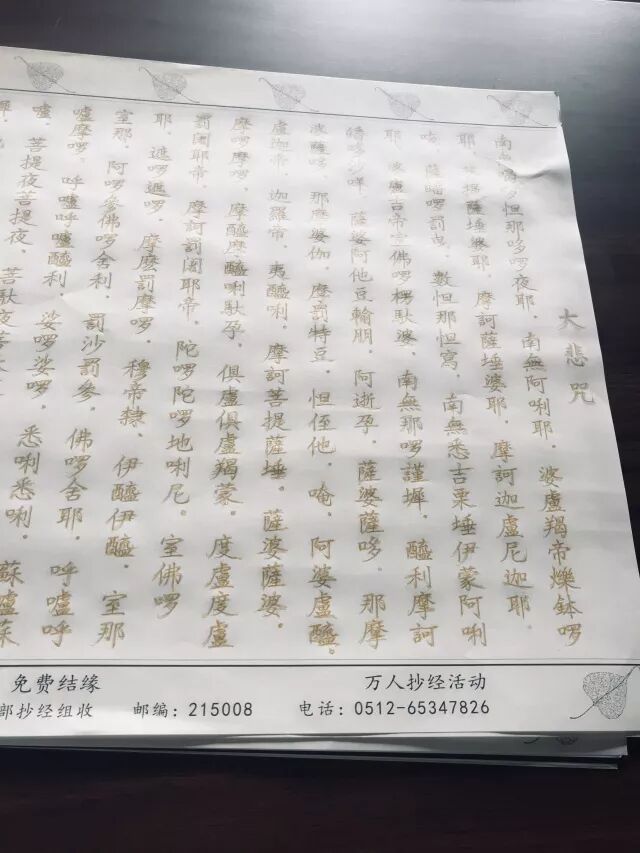 大悲咒
南無喝囉怛那哆囉夜耶．南無阿唎耶．婆盧羯帝爍鉢囉
耶．菩提薩埵婆耶．摩訶薩埵婆耶．摩訶迦盧尼迦耶．
唵．薩皤囉罰曳．數怛那怛寫．南無悉吉栗埵伊蒙阿唎
耶．婆盧吉帝室佛囉楞馱婆．南無那囉謹墀．醯利摩訶
皤哆沙咩．薩婆阿他豆輸朋．阿逝孕．薩婆薩哆．那摩
婆薩哆．那摩婆伽．摩罰特豆．怛侄他．唵．阿婆盧醯．
盧迦帝．迦羅帝．夷醯唎．摩訶菩提薩埵．薩婆薩婆．
摩囉摩囉．摩醯摩醯唎馱孕．俱盧俱盧羯蒙．度盧度盧
罰闍耶帝．摩訶罰闍耶帝．陀囉陀囉地唎尼．室佛囉
耶．遮囉遮囉．摩麼罰摩囉．穆帝隸．伊醯伊醯．室那
室那．阿囉參佛囉舍利．罰沙罰參．佛囉舍耶．呼嚧呼
嚧摩囉．呼嚧呼嚧醯利．娑囉娑囉．悉唎悉唎．蘇嚧蘇
嚧．菩提夜菩提夜．菩馱夜
免费结缘 万人抄经活动
部抄经组收 邮编：215008 电话：0512-65347826